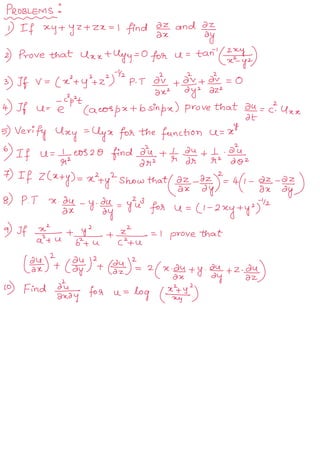 PROBLEMS:
1) If xy+yz+zx=1 find ∂z/∂x and ∂z/∂y
2) Prove that Uxx+Uyy=0 for u=tan⁻¹(2xy/(x²-y²))
3) If V=(x²+y²+z²)^(-1/2) P.T ∂²v/∂x²+∂²v/∂y²+∂²v/∂z²=0
4) If u=e^(-c²p²t)(acospx+bsinpx) prove that ∂u/∂t=c².Uxx
5) Verify Uxy=Uyx for the function u=x^y
6) If u=1/r² cos2θ find ∂²u/∂r²+1/r ∂u/∂r+1/r².∂²u/∂θ²
7) If Z(x+y)=x²+y² show that(∂z/∂x-∂z/∂y)²=4(1-∂z/∂x-∂z/∂y)
8) P.T x.∂u/∂x-y.∂u/∂y=y²u³ for u=(1-2xy+y²)^(-1/2)
9) If x²/(a²+u)+y²/(b²+u)+z²/(c²+u)=1 prove that
(∂u/∂x)²+(∂u/∂y)²+(∂u/∂z)²=2(x.∂u/∂x+y.∂u/∂y+z.∂u/∂z)
10) Find ∂²u/∂x∂y for u=log((x²+y²)/xy)